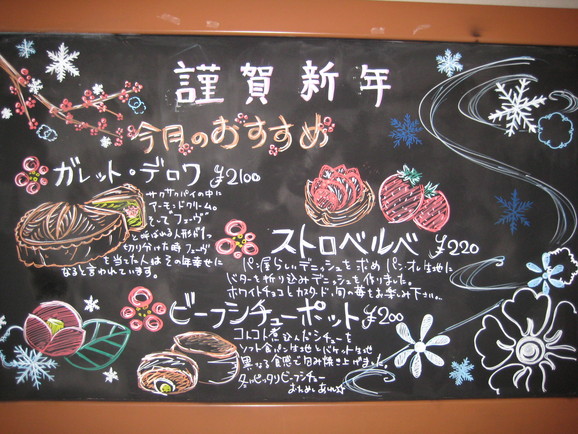 謹賀新年
今月のおすすめ
ガレット・デロワ ¥2100
サクサクパイの中に
アーモンドクリーム。
そして"フェーヴ"
と呼ばれる人形が1つ
切り分けた時 フェーヴ
を当た人は その年幸せに
なると言われています。
ストロベルベ ¥220
パン屋らしいデニッシュを求め パン・オ・レ生地に
バターを折り込みデニッシュを作りました。
ホワイトチョコとカスタード、旬の苺をお楽み下さい。
ビーフシチューポット ¥200
コトコト煮込んだシチューを
ソフト食パン生地とバケット生地
異なる食感で包み焼き上げました。
ピッタリビーフシチュー
おためしあれ☆